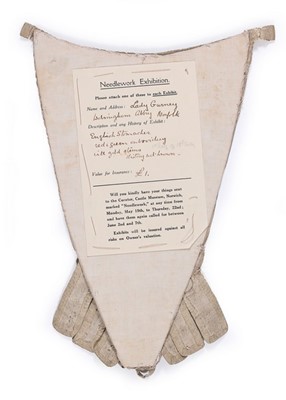 Needlework Exhibition.
Please attach one of these to each Exhibit.
Name and Address: Lady Gurney
Walsingham Abbey Norfolk
Description and any History of Exhibit:
English Stomacher
red & green embroidery
with gold
history not known
Value for Insurance: £1.
Will you kindly have your things sent
to the Curator, Castle Museum, Norwich,
marked "Needlework," at any time from
Monday, May 19th, to Thursday, 22nd;
and have them again called for between
June 2nd and 7th.
Exhibits will be insured against all
risks on Owner's valuation.